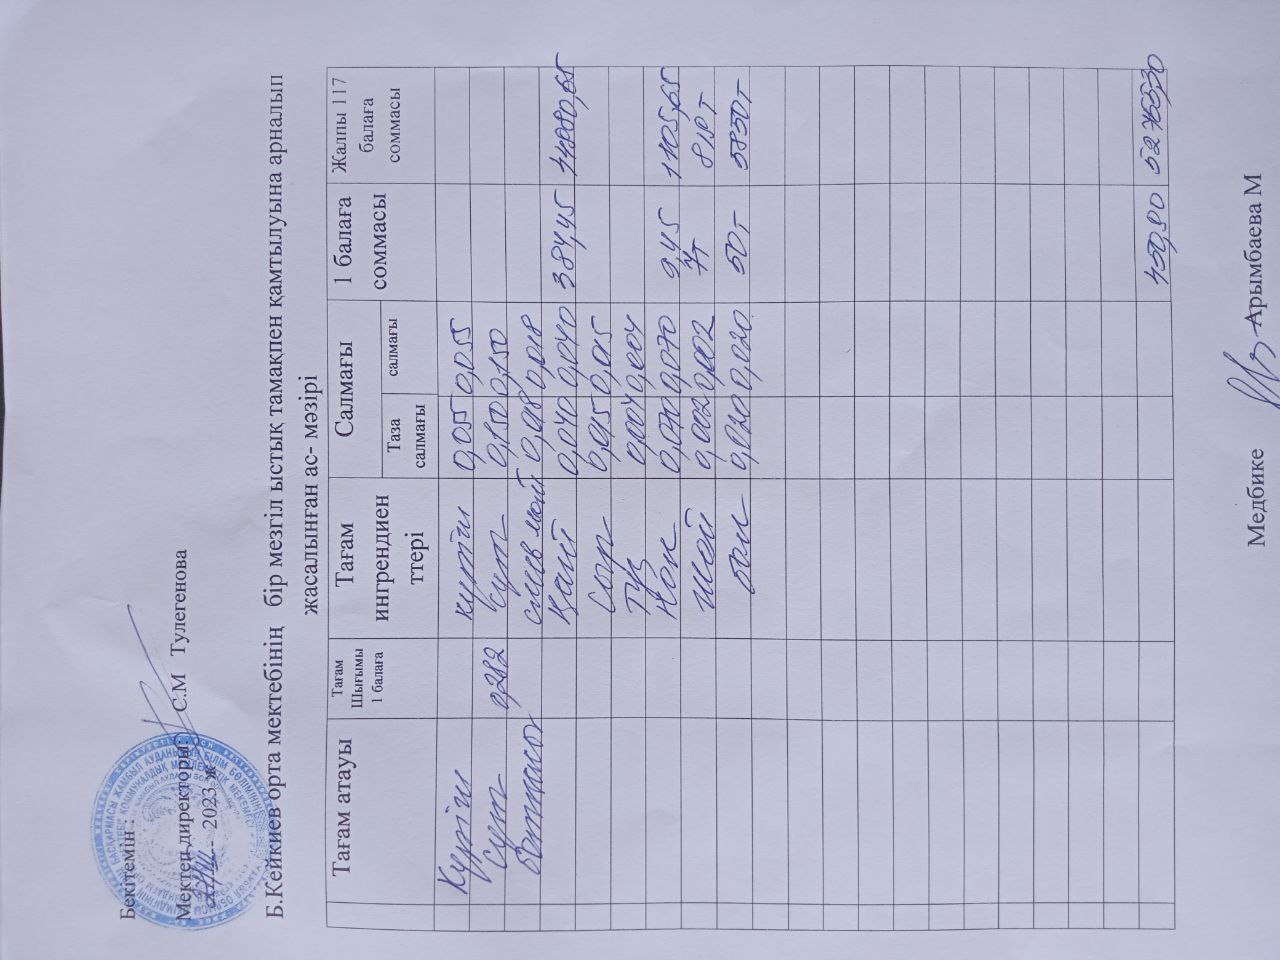 Бекітемін :
Мектеп директоры: С.М Тулегенова
2023 ж
Б.Кейкиев орта мектебінің бір мезгіл ыстық тамақпен қамтылуына арналып
жасалынған ас- мәзірі
Тағам атауы
Тағам Шығымы 1 балаға
Тағам ингрендиен ттері
Салмағы
Таза салмағы
салмағы
1 балаға соммасы
Жалпы 117 балаға соммасы
Күріш күріш 0,055 0,055
сүт 0,282 сүт 0,150 0,150
ботқасы 0,018 0,018
0,040 0,040 384,45
0,015 0,015
тұз 0,004 0,004
Нан 0,070 0,070 9,45 1105,65
Шай 0,002 0,002 7т 819 т
0,020 0,020 50т 5850т
450,90
Медбике Арымбаева М